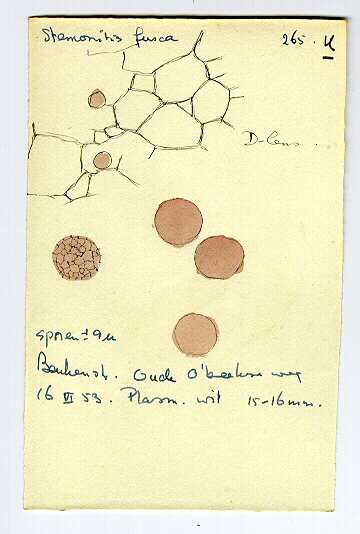 Stemonitis fusca 265. K
D-lens.
sporen ± 9µ
Oude O'beekse weg
16 VI 53. Plasm. wit 15-16 mm.